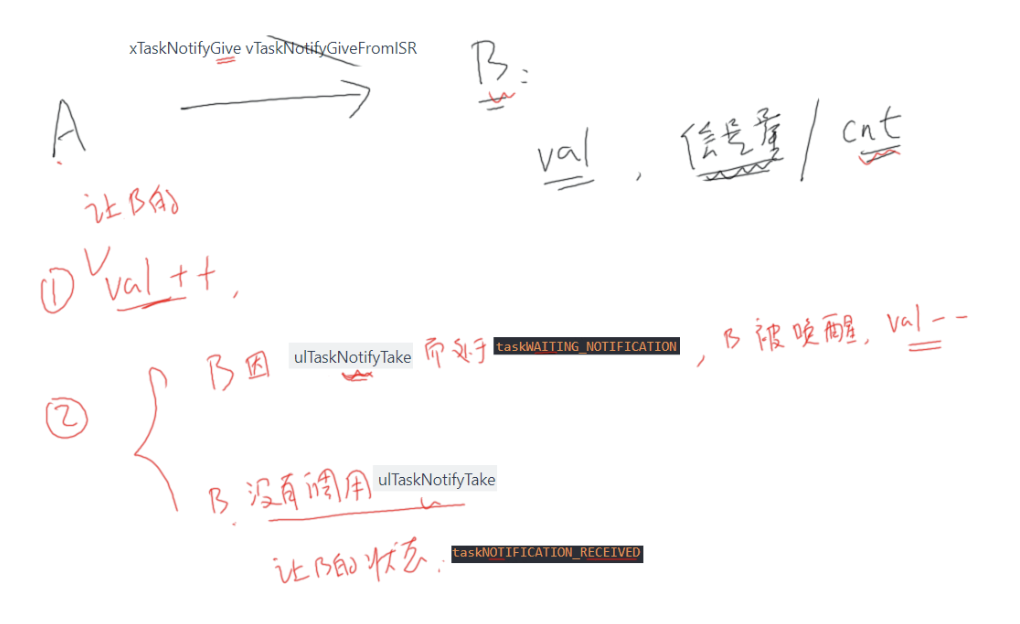 xTaskNotifyGive vTaskNotifyGiveFromISR
A
B:
val , 信号量 / cnt
让B的
① val ++ ,
② B因 ulTaskNotifyTake 而处于 taskWAITING_NOTIFICATION , B被唤醒, val--
B. 没有调用 ulTaskNotifyTake
让B的状态: taskNOTIFICATION_RECEIVED